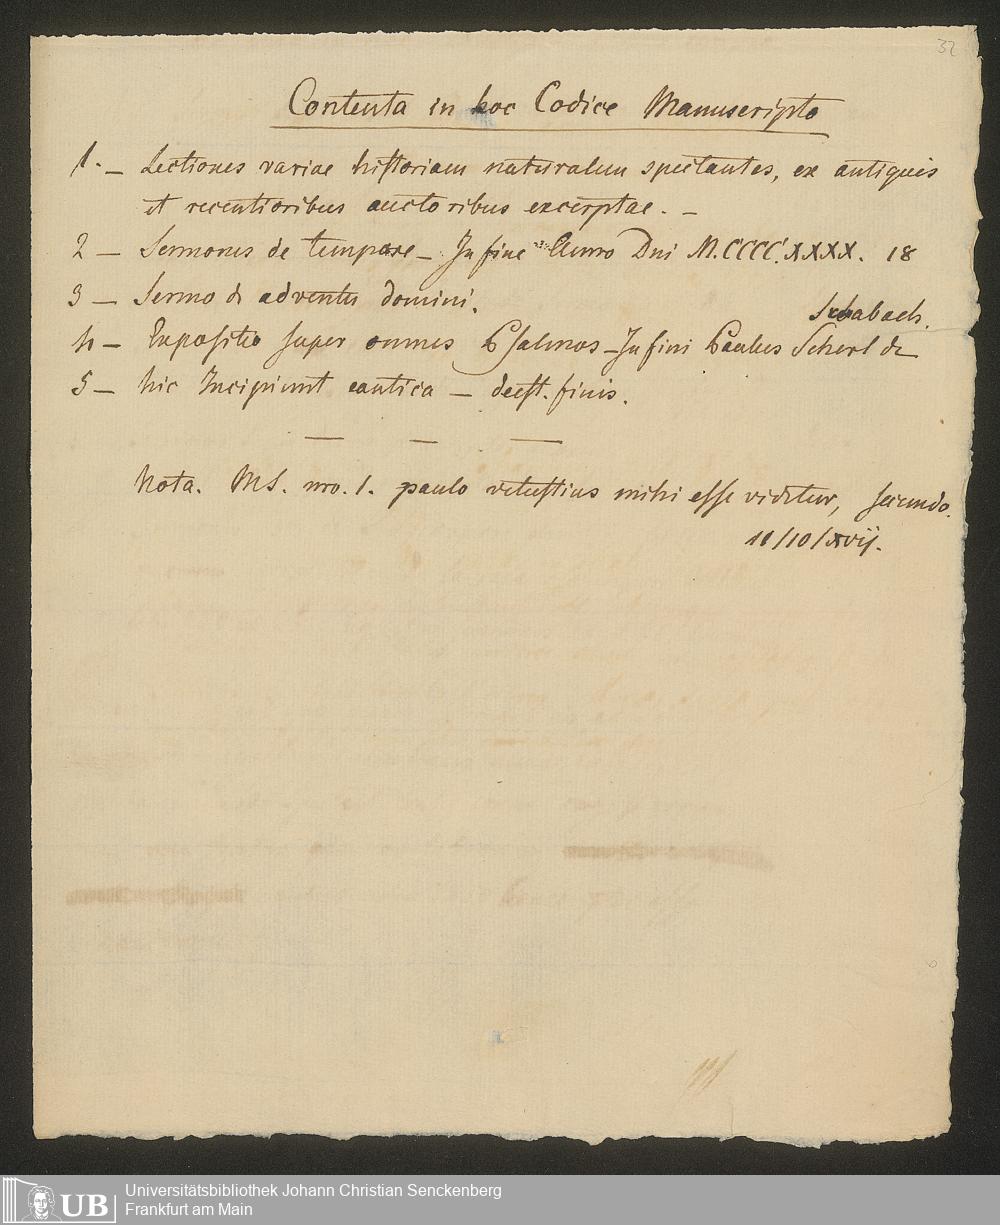 32
Contenta in hoc Codice Manuscripto
1. – Lectiones variae historiam naturalem spectantes, ex antiquis
et recentioribus auctoribus excerptae. –
2 – Sermones de tempore – In fine Anno Dni M.CCCC.XXXX. 18
3 – Sermo de adventu domini.
4 – Expositio super omnes Psalmos – In fini Paulus Scherl de
Schabach.
5 – hic Incipiunt cantica – deest. finis.
Nota. MS. nro. 1. paulo vetustius mihi esse videtur, secundo.
11/10/xvij.
UB
Universitätsbibliothek Johann Christian Senckenberg
Frankfurt am Main